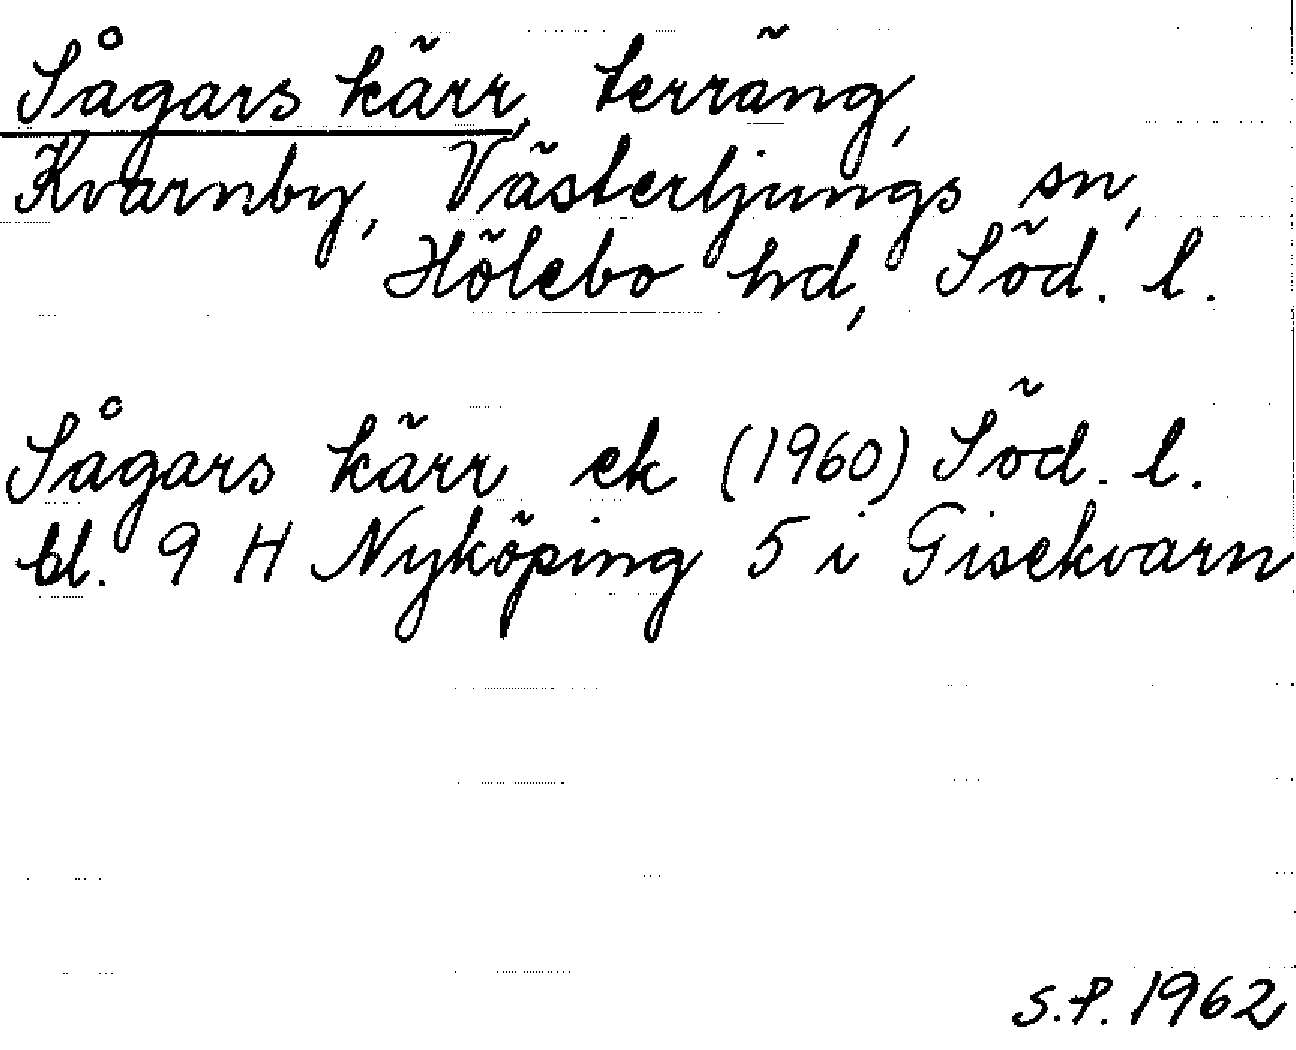 Sågars kärr, terräng,
Kvarnby, Västerljungs sn,
Hölebo hd, Söd. l.
Sågars kärr ek (1960) Söd. l.
bl. 9 H Nyköping 5 i Gisekvarn
S.P. 1962